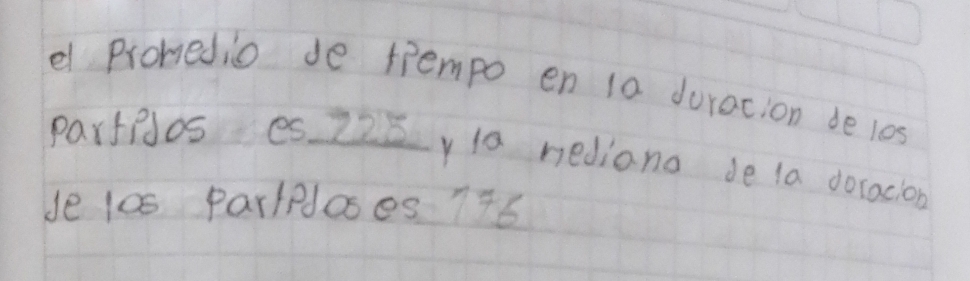 el promedio de tiempo en la duracion de los
partidos es 225 y la mediana de la doracion
de los partidos es